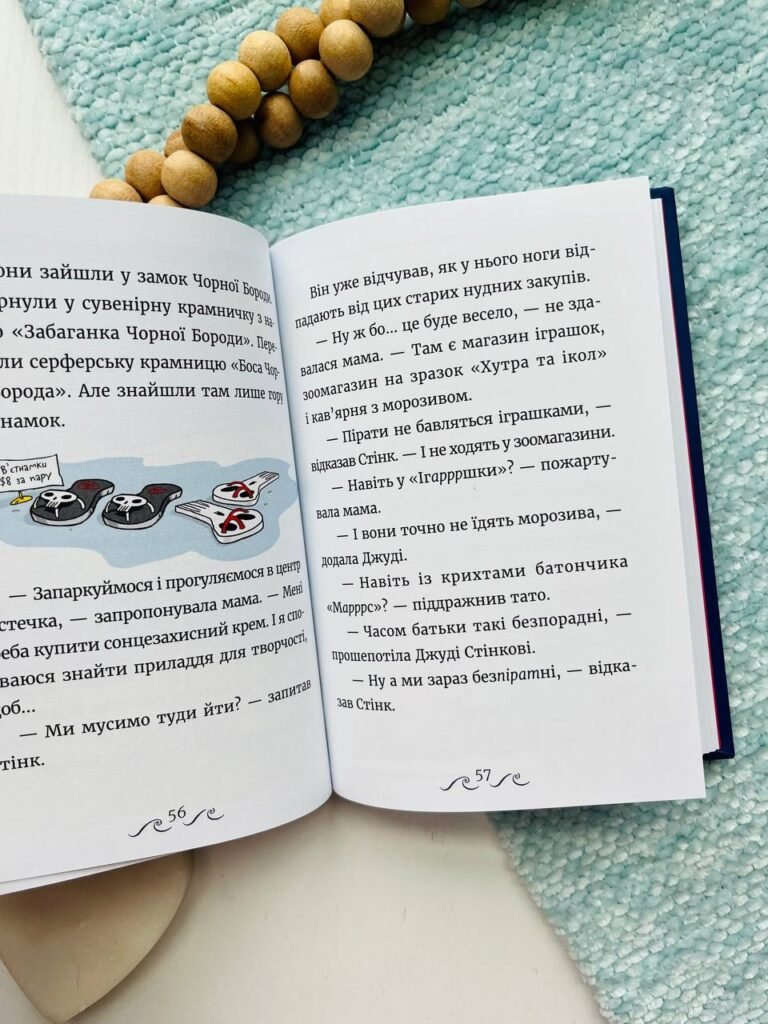 они зайшли у замок Чорної Бороди.
рнули у сувенірну крамничку з на-
ю «Забаганка Чорної Бороди». Пере-
ли серферську крамницю «Боса Чор-
орода». Але знайшли там лише гору
намок.
В'єтнамки
$8 за пару
— Запаркуймося і прогуляємося в центр
стечка, — запропонувала мама. — Мені
еба купити сонцезахисний крем. І я спо-
ваюся знайти приладдя для творчості,
об...
— Ми мусимо туди йти? — запитав
тінк.
56
Він уже відчував, як у нього ноги від-
падають від цих старих нудних закупів.
— Ну ж бо... це буде весело, — не зда-
валася мама. — Там є магазин іграшок,
зоомагазин на зразок «Хутра та ікол»
і кав'ярня з морозивом.
— Пірати не бавляться іграшками, —
відказав Стінк. — І не ходять у зоомагазини.
— Навіть у «Ігаррршки»? — пожарту-
вала мама.
— І вони точно не їдять морозива, —
додала Джуді.
— Навіть із крихтами батончика
«Марррс»? — піддражнив тато.
— Часом батьки такі безпорадні, —
прошепотіла Джуді Стінкові.
— Ну а ми зараз безпіратні, — відка-
зав Стінк.
57